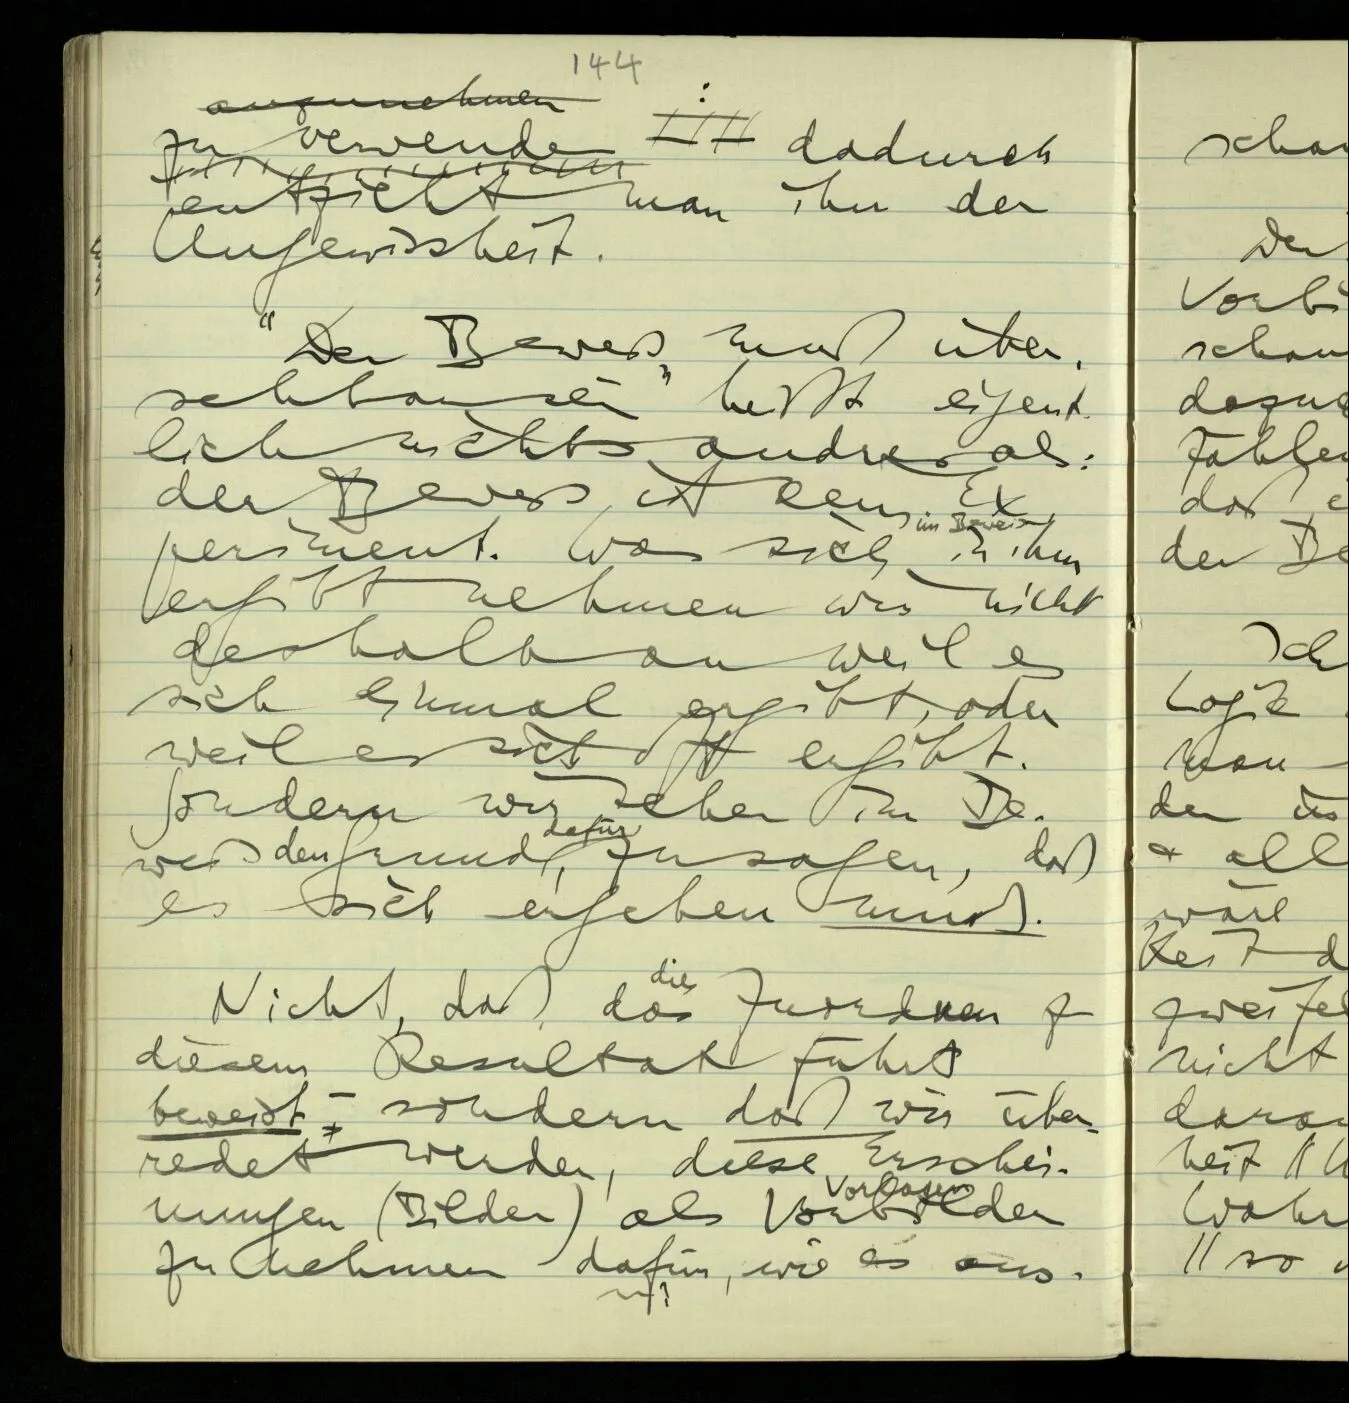 144
anzunehmen
zu verwenden : dadurch
entzieht man ihn der
Ungewissheit.
"Der Beweis muß über-
sehbar sein" heißt eigent-
lich nichts andres als:
der Beweis ist kein Ex-
im Beweise
periment. Was sich in ihm
ergibt nehmen wir nicht
deshalb an weil es
sich einmal ergibt, oder
weil es sich oft ergibt.
Sondern wir sehen im Be-
dafür
weis den Grund, zu sagen, daß
es sich ergeben muß.
dies
Nicht, daß das Zuordnen zu
diesem Resultat führt
beweist – sondern daß wir über-
redet werden, diese Erschei-
Vorlagen
nungen (Bilder) als Vorbilder
zu nehmen dafür, wie es aus-
schau
Der
Vorbi
schau
dazu
der Be
Ich
Logik
man
den
& all
wäre
keit d
zweifel
nicht
daran
heit //
Wahr
// so